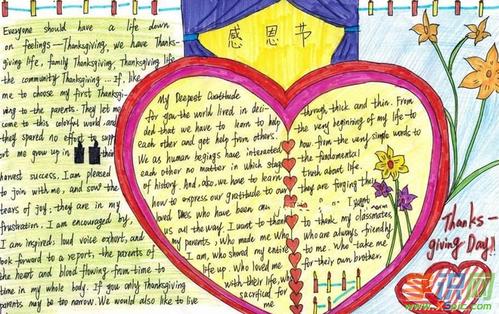 感恩节
Everyone should have a life down
on feelings — Thanksgiving, we have Thanks-
giving life, family Thanksgiving, Thanksgiving life
the community Thanksgiving ... If, like
me to choose my first Thanksgi-
ving to the parents. They let me
come to this colorful world, and
they spared no effort to supp
ort me grow up in
harvest success. I am pleased
to join with me, and sow the
tears of joy; they are in my
frustration. I am encouraged by,
I am inspired; loud voice exhort, and
look forward to a report, the parents of
the heart and blood flowing from time to
time in my whole body. If you only Thanksgiving
parents may be too narrow. We would also like to live
My Deepest Gratitude
for you the world lived in deci-
ded that we have to learn to help
each other and get help from others.
We as human beings have interacted
each other no matter in which stag
of history. And also, we have to learn
how to express our gratitude to our
loved Ones who have been on
us all the way. I want to than
my parents, Who made me Who
I am, who showed my entire
life up, Who loved me
with their life, who
sacrificed for
me
through thick and thin. From
the very beginning of my life to
now. From the very single words to
the fundamental
truth about life.
they are forging their
I want
to thank my classmates,
who are always friendly
to me. Who take me
for their own brother.
Thanks-
giving Day!!